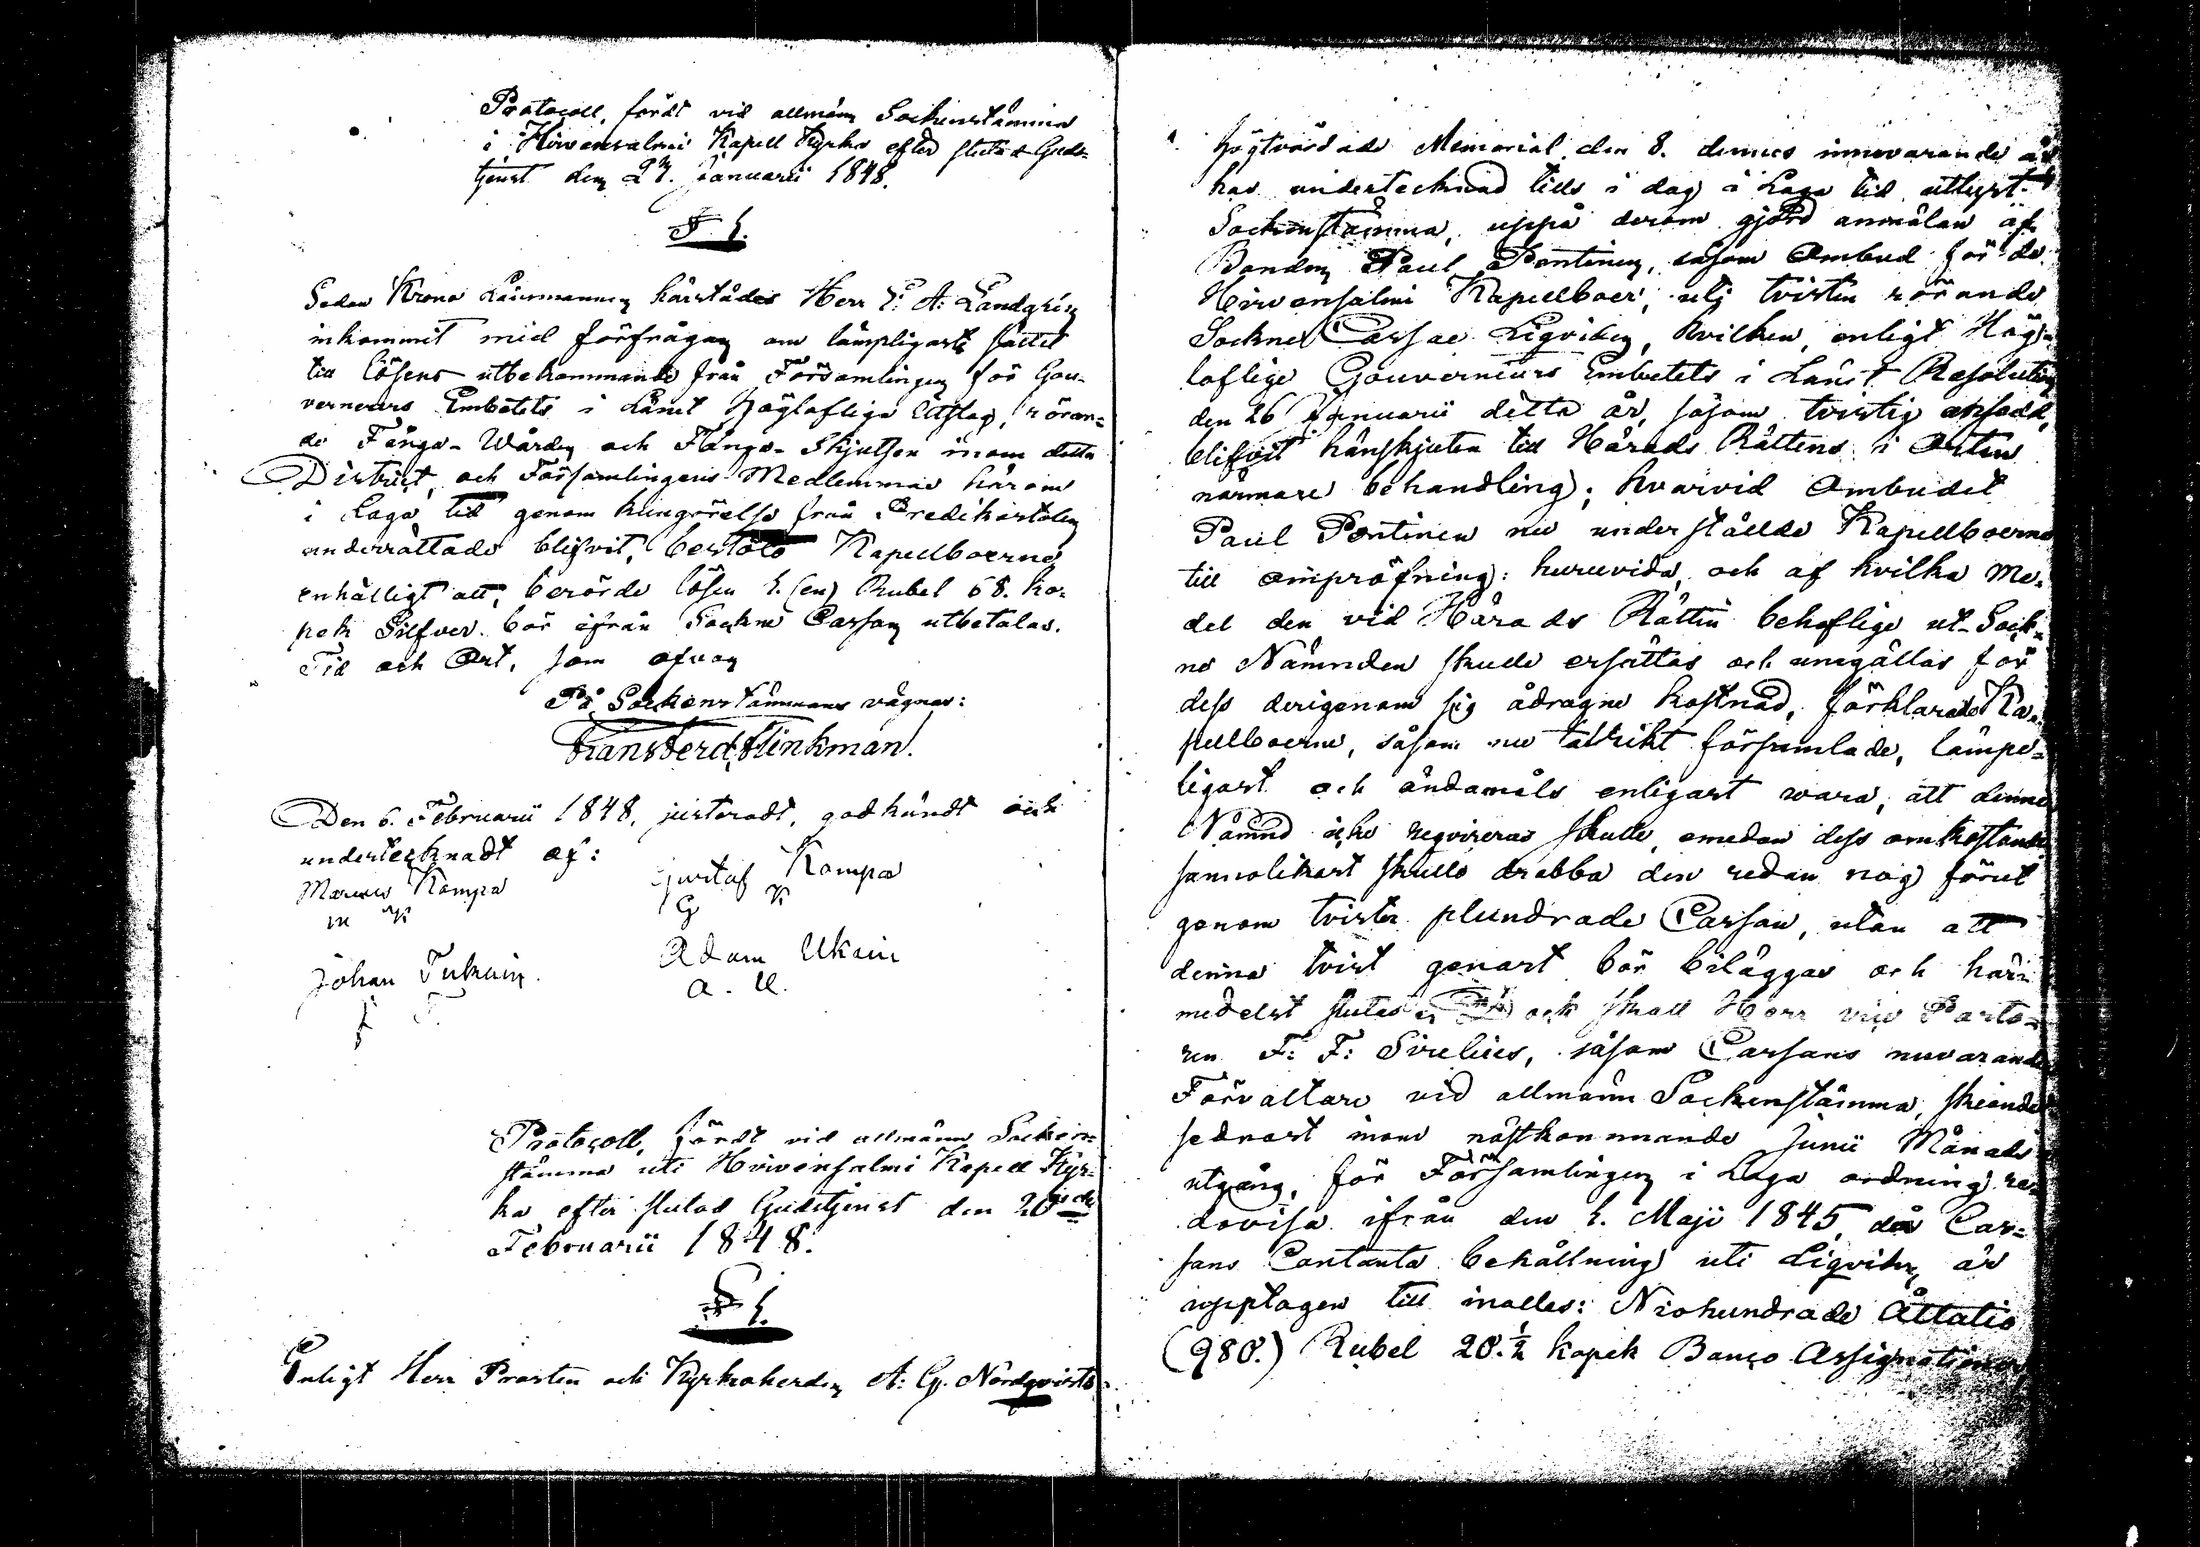 Protocoll, fördt vid allmän Sockenstämma
i Hirvensalmi Kapell Kyrka efter slutad Guds-
tjenst den 27. Januarii 1848.
§ 1.
Sedan Krono Länsmannen härstädes Herr E: A: Landgrén
inkommit med förfrågan om lämpligaste sättet
till lösens utbekommande från Församlingen för Gou-
verneurs Embetets i Länet Höglofliga Utslag, röran-
de Fånge-Wården och Fånge-Skjutsen inom detta
District, och Församlingens Medlemmar härom
i Laga tid genom kungörelse från Predikostolen
underrättade blifvit, beslöto Kapellboerne
enhälligt att, berörde lösen 1. (en) Rubel 68. Ko-
pek Silfver bör ifrån Sockne Cassan utbetalas.
Tid och Ort, som ofvan
På Sockenstämmans vägnar:
Frans Ferd. Flinkman.
Den 6. Februarii 1848, justeradt, godkändt och
undertecknadt af:
Marcus Kampa
M K
Gustaf Kampa
G K
Johan Tukain
J T.
Adam Ukain
A. U.
Protocoll, fördt vid allmänn Socken-
stämma uti Hirvensalmi Kapell Kyr-
ka efter slutad Gudstjenst den 20
Februarii 1848.
§ 1.
Enligt Herr Prosten och Kyrkoherden A: G. Nordqvists
högtvördade Memorial den 8. dennes innevarande år
har undertecknad tills i dag å Laga tid utlyst
Sockenstämma, uppå derom gjord anmälan af
Bonden Paul Pentinen, såsom Ombud för de
Hirvensalmi Kapellboer, uti tvisten rörande
Sockne Cassae Liqviden, hvilken, enligt Hög-
loflige Gouverneurs Embetets i Länet Resolution
den 26 Januarii detta år, såsom tvistig ansedd,
blifvit hänskjuten till Härads Rättens i Orten
närmare behandling; hvarvid Ombudet
Paul Pentinen nu underställde Kapellboerne
till ompröfning: huruvida, och af hvilka Me-
del den vid Härads Rätten behöflige ut-Sock-
ne Nämnden skulle ersättas och umgällas för
dess derigenom sig ådragne kostnad, förklarade Ka-
pellboerne, såsom nu talrikt församlade, lämpe-
ligast och ändamåls enligast wara, att denne
Nämnd icke reqvireras skulle, emedan dess omkostnad
sannolikast skulle drabba den redan nog förut
genom tvister plundrade Cassan, utan att
denna tvist genast bör biläggas och här
medelst slutas och skall Herr vice Pasto-
ren F: F: Sirelius, såsom Cassans nuvarande
Förvaltare vid allmänn Sockenstämma, skeende
sednast inom nästkommande Junii Månads
utgång, för Församlingen i Laga ordning re-
dovisa ifrån den 1. Maji 1845, då Cas-
sans Contanta behållning uti Liqviden är
upptagen till inalles: Niohundrade Åttatio
(980.) Rubel 20.½ kopek Banco Assignationer